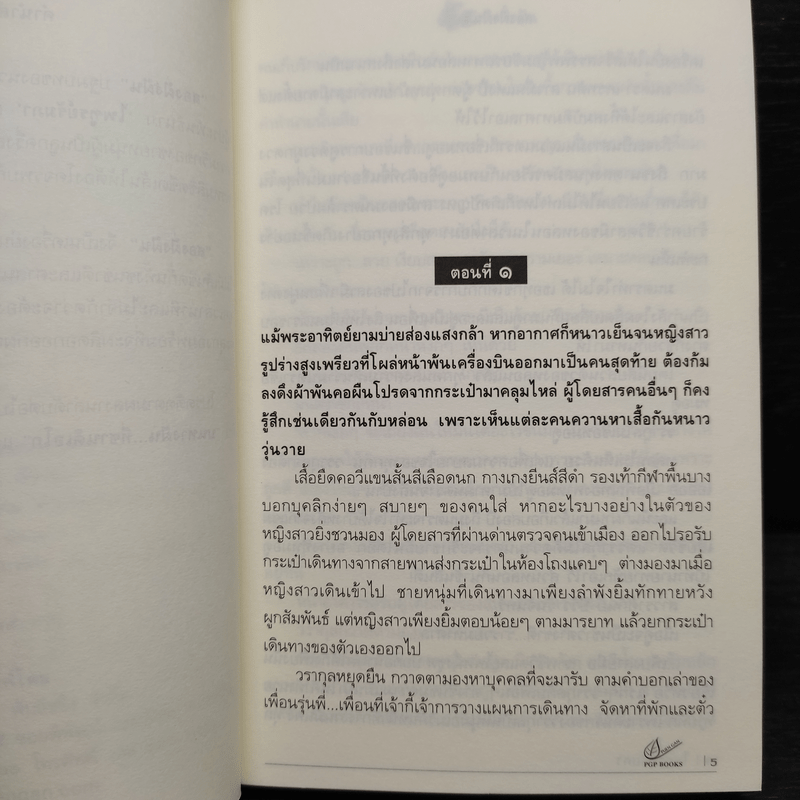 ตอนที่ ๑
แม้พระอาทิตย์ยามบ่ายส่องแสงกล้า หากอากาศก็หนาวเย็นจนหญิงสาว
รูปร่างสูงเพรียวที่โผล่หน้าพ้นเครื่องบินออกมาเป็นคนสุดท้าย ต้องก้ม
ลงดึงผ้าพันคอผืนโปรดจากกระเป๋ามาคลุมไหล่ ผู้โดยสารคนอื่นๆ ก็คง
รู้สึกเช่นเดียวกันกับหล่อน เพราะเห็นแต่ละคนควานหาเสื้อกันหนาว
วุ่นวาย
เสื้อยืดคอวีแขนสั้นสีเลือดนก กางเกงยีนส์สีดำ รองเท้ากีฬาพื้นบาง
บอกบุคลิกง่ายๆ สบายๆ ของคนใส่ หากอะไรบางอย่างในตัวของ
หญิงสาวยิ่งชวนมอง ผู้โดยสารที่ผ่านด่านตรวจคนเข้าเมือง ออกไปรอรับ
กระเป๋าเดินทางจากสายพานส่งกระเป๋าในห้องโถงแคบๆ ต่างมองมาเมื่อ
หญิงสาวเดินเข้าไป ชายหนุ่มที่เดินทางมาเพียงลำพังยิ้มทักทายหวัง
ผูกสัมพันธ์ แต่หญิงสาวเพียงยิ้มตอบน้อยๆ ตามมารยาท แล้วยกกระเป๋า
เดินทางของตัวเองออกไป
วรากุลหยุดยืน กวาดตามองหาบุคคลที่จะมารับ ตามคำบอกเล่าของ
เพื่อนรุ่นพี่...เพื่อนที่เจ้ากี้เจ้าการวางแผนการเดินทาง จัดหาที่พักและตั๋ว
PGP BOOKS
5